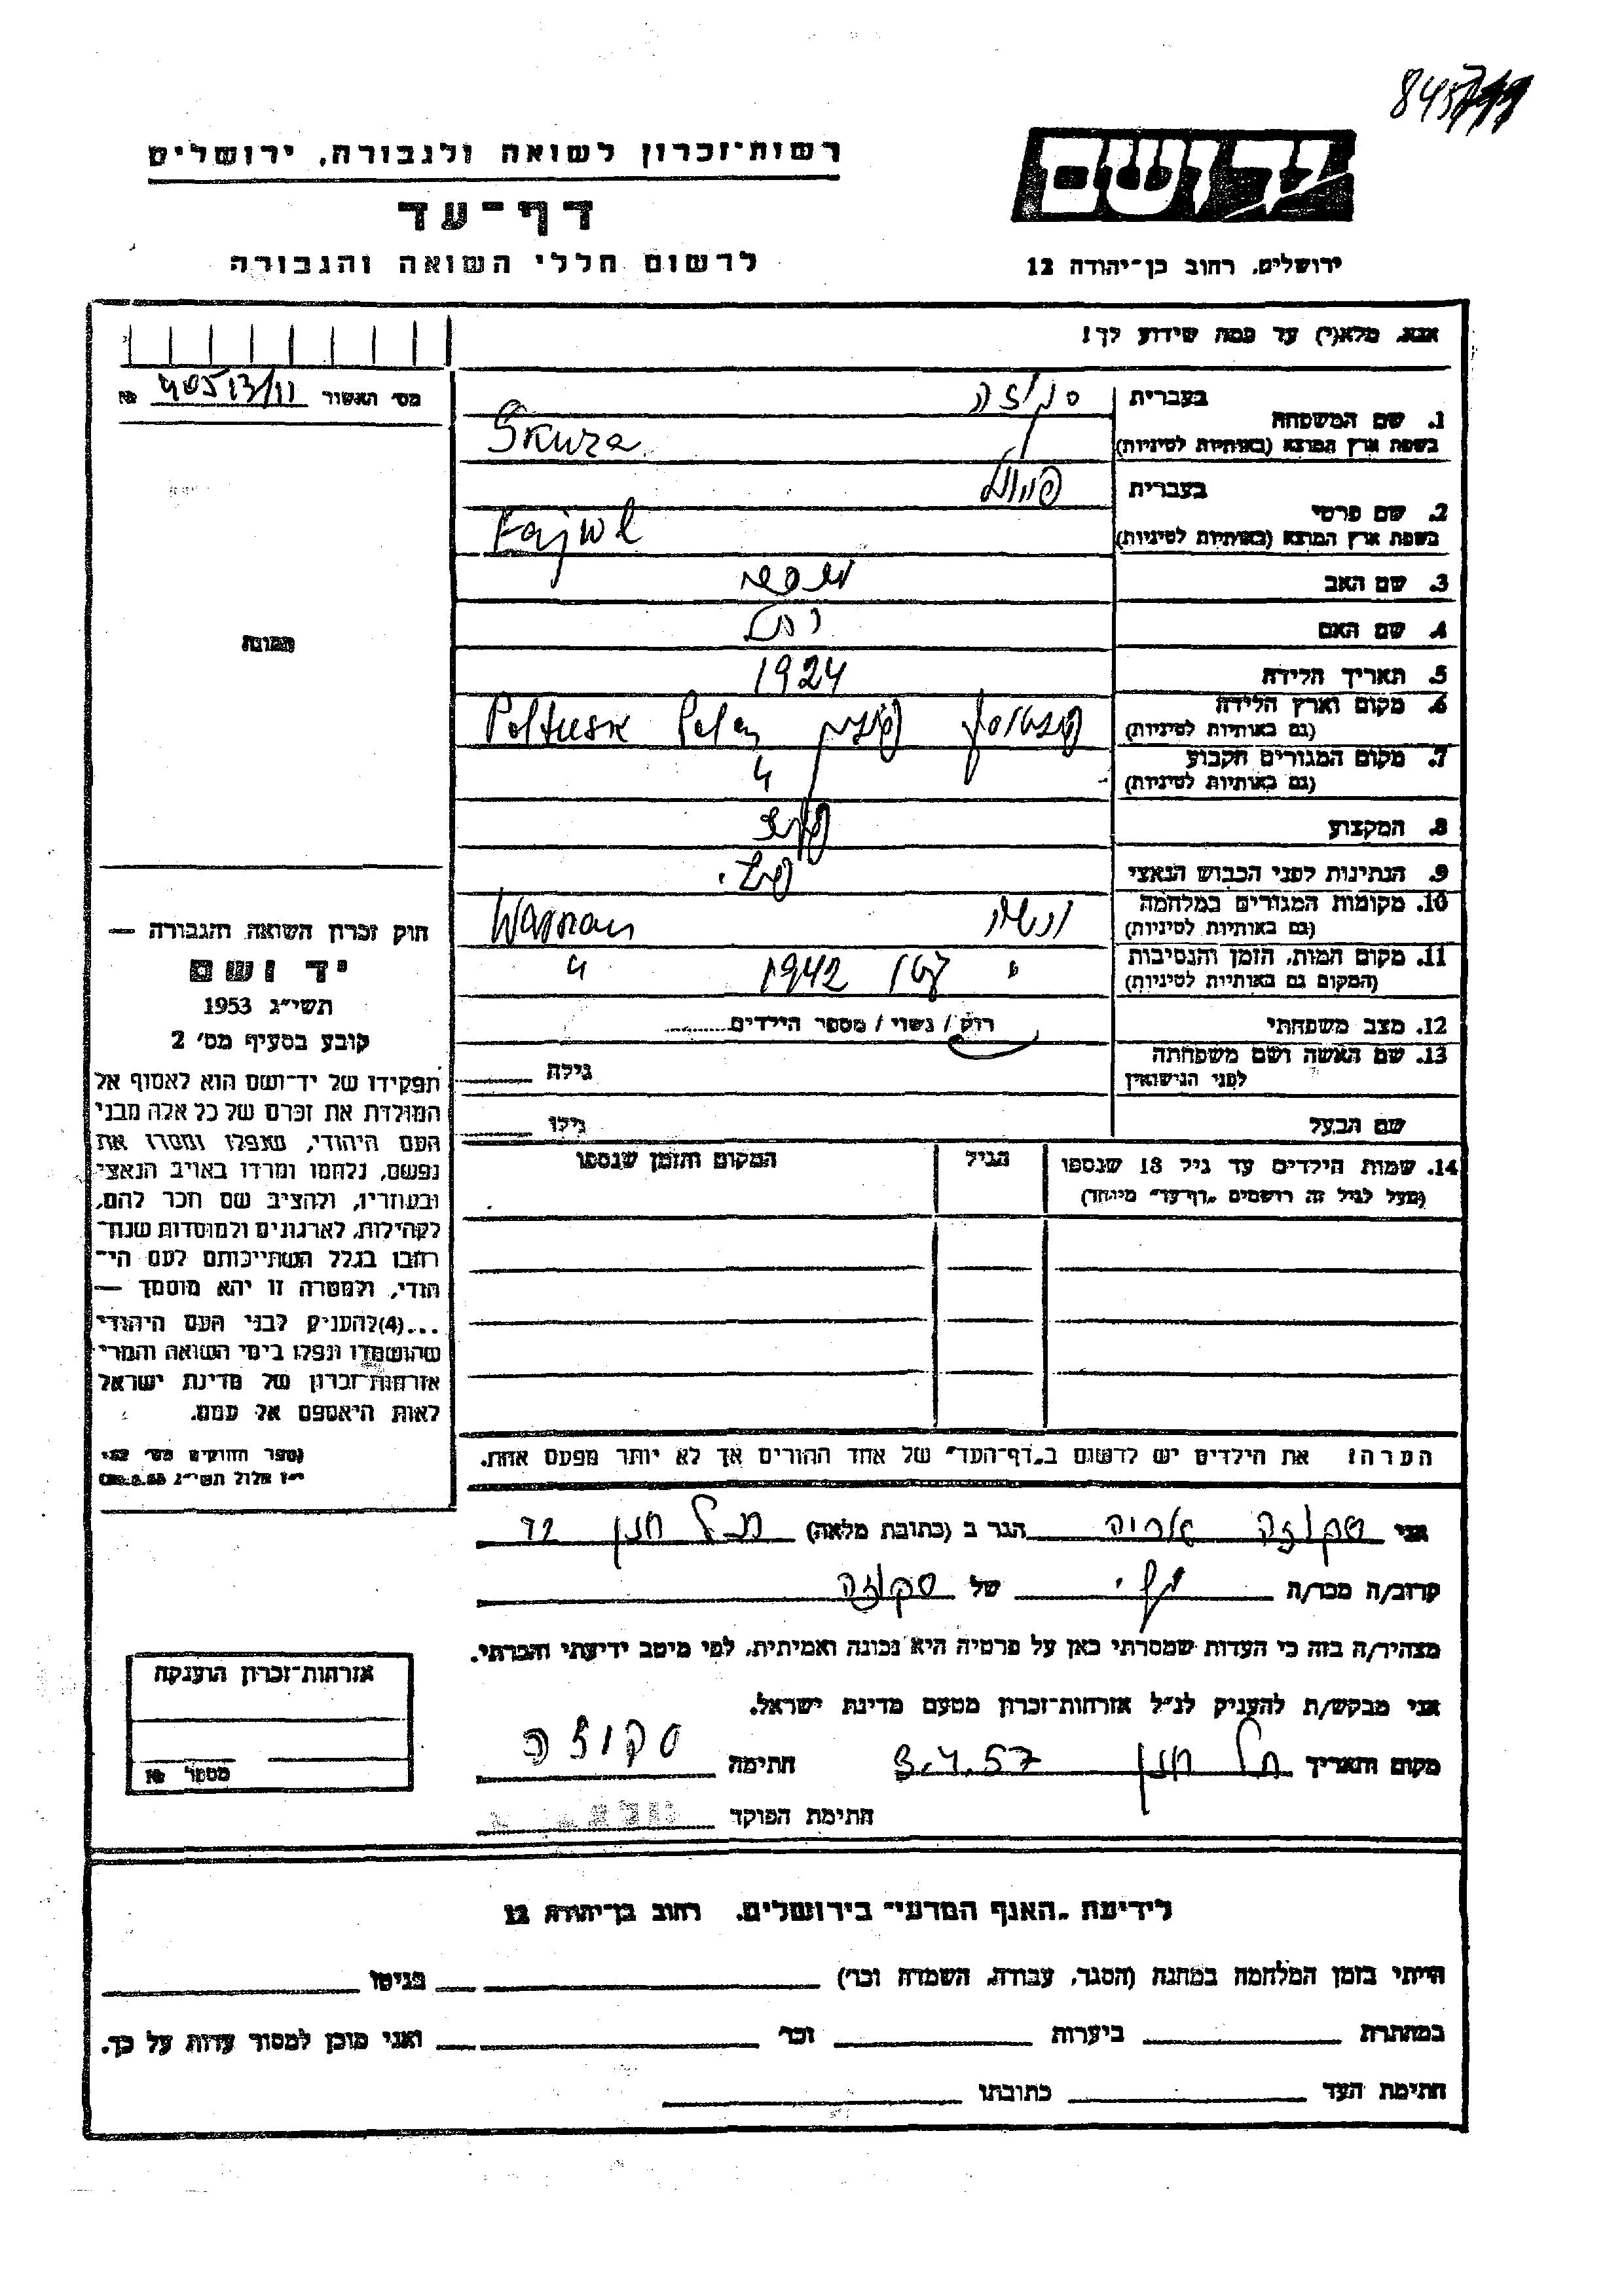 יד ושם
רשות־זכרון לשואה ולגבורה, ירושלים
דף־עד
ירושלים, רחוב בן־יהודה 12
לרשום חללי השואה והגבורה
אנא, מלא(י) עד כמה שידוע לך!
מס׳ האשור 40513/11 №
1. שם המשפחה
בעברית סקוזה
בשפת ארץ המוצא (באותיות לטיניות) Skuza
2. שם פרטי
בעברית
בשפת ארץ המוצא (באותיות לטיניות) Fajwl
3. שם האב
4. שם האם רחל
5. תאריך הלידה 1924
6. מקום וארץ הלידה
(גם באותיות לטיניות) פולטוסק פולין Poltusk Polen
7. מקום המגורים הקבוע
(גם באותיות לטיניות) "
8. המקצוע
9. הנתינות לפני הכבוש הנאצי
10. מקומות המגורים במלחמה
(גם באותיות לטיניות) ורשה
11. מקום המות, הזמן והנסיבות
(המקום גם באותיות לטיניות) " גטו 1942 "
12. מצב משפחתי רווק / נשוי / מספר הילדים
13. שם האשה ושם משפחתה
לפני הנישואין גילה
שם הבעל גילו
14. שמות הילדים עד גיל 18 שנספו הגיל המקום והזמן שנספו
(מעל לגיל זה רושמים „דף־עד״ מיוחד)
הערה: את הילדים יש לרשום ב„דף־העד״ של אחד ההורים אך לא יותר מפעם אחת.
תמונה
חוק זכרון השואה והגבורה —
יד ושם
תשי״ג 1953
קובע בסעיף מס׳ 2
תפקידו של יד־ושם הוא לאסוף אל
המולדת את זכרם של כל אלה מבני
העם היהודי, שנפלו ומסרו את
נפשם, נלחמו ומרדו באויב הנאצי
ובעוזריו, ולהציב שם וזכר להם,
לקהילות, לארגונים ולמוסדות שנח־
רבו בגלל השתייכותם לעם הי־
הודי, ולמטרה זו יהא מוסמך —
...(4) להעניק לבני העם היהודי
שהושמדו ונפלו בימי השואה והמרי
אזרחות־זכרון של מדינת ישראל
לאות היאספם אל עמם.
(ספר החוקים מס׳ 132
י״ז אלול תשי״ג 28.8.53)
אני סקוזה אריה הגר ב (כתובת מלאה) תל חנן
קרוב/ה מכר/ה של סקוזה
מצהיר/ה בזה כי העדות שמסרתי כאן על פרטיה היא נכונה ואמיתית, לפי מיטב ידיעתי והכרתי.
אני מבקש/ת להעניק לנ״ל אזרחות־זכרון מטעם מדינת ישראל.
מקום ותאריך תל חנן 3.4.57 חתימה סקוזה
חתימת הפוקד
אזרחות־זכרון הוענקה
מספר №
לידיעת „האגף המדעי״ בירושלים, רחוב בן־יהודה 12
הייתי בזמן המלחמה במחנה (הסגר, עבודה, השמדה וכר׳) בגיטו
במחתרת ביערות וכר׳ ואני מוכן למסור עדות על כך.
חתימת העד כתובתו